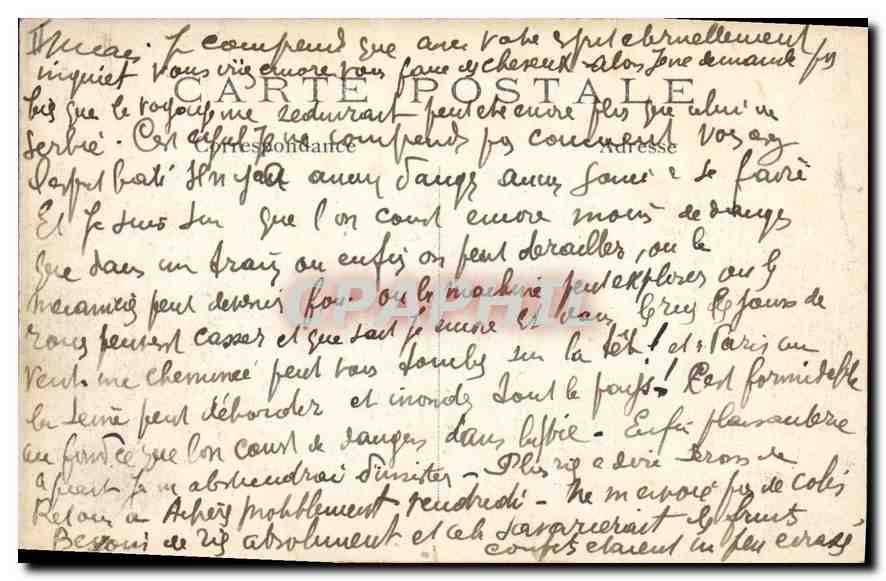 II Je comprend que avec votre esprit eternellement
inquiet vous vous encore vous faire des cheveux - alors Je ne demande pas
CARTE POSTALE
que le voyage me seduirait peut etre encore plus que celui de
Serbie. C'est Je ne comprends pas comment vous ayez
Correspondance Adresse
l'esprit bati Il n'y a aucun danger aucun souci à se faire
Et Je suis sur que l'on court encore moins de danger
que dans un train ou enfin on peut derailler, ou le
mecanicien peut devenir fou ou la machine peut exploser ou les
CPAPHIL
roues peuvent casser et que sais je encore Et dans les rues les jours de
vent une cheminée peut vous tomber sur la tête! et à Paris au
la Seine peut déborder et inonder tout le pays! C'est formidable
au fond ce que l'on court de dangers dans la vie - Enfin plaisanterie
a part Je m'abstiendrai d'insister - Plus rien a dire
Retour a probablement vendredi - Ne m'envoie pas de colis
Besoin de rien absolument et cela les fruits
confits etaient un peu ecrasés